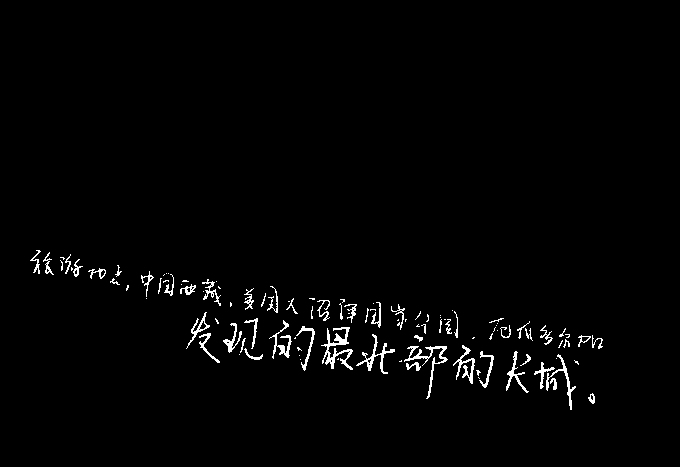 旅游地点,中国西藏,美国大沼泽国家公园、厄瓜多尔加
发现的最北部的长城。